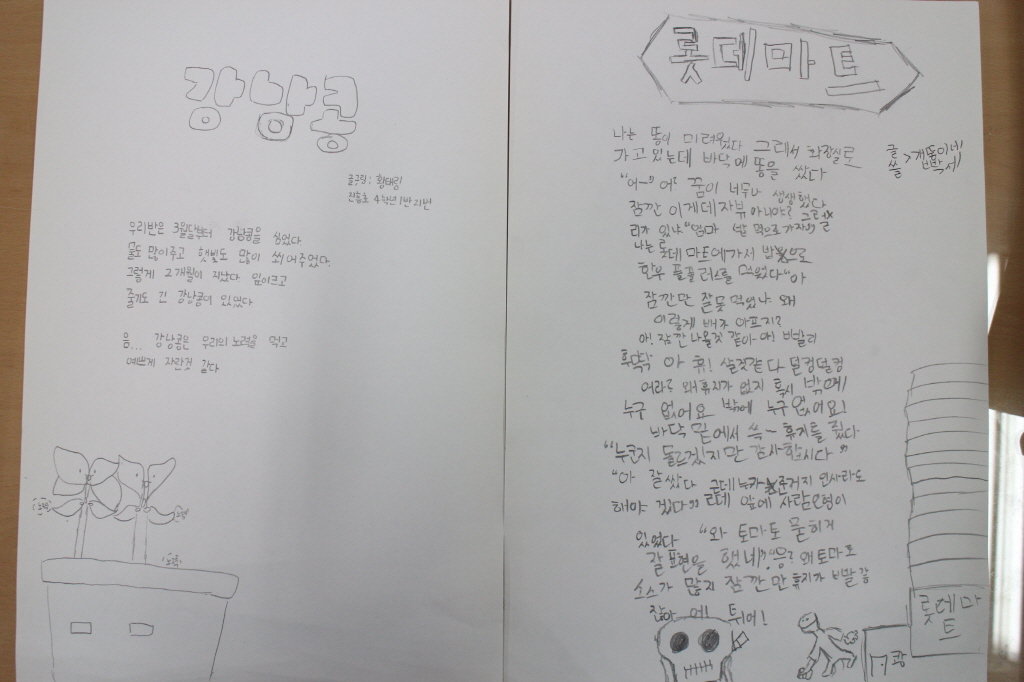 강낭콩
글구림: 황태림
진흥초 4학년 1반 21번
우리반은 3월달부터 강낭콩을 심었다
물도 많이주고 햇빛도 많이 쐬어주었다.
그렇게 2개월이 지났다. 잎이크고
줄기도 긴 강낭콩이 있었다
음... 강낭콩은 우리의 노력을 먹고
예쁘게 자란것 같다
노력
노력
노력
롯데마트
나는 똥이 마려웠다 그래서 화장실로
가고 있는데 바닥에 똥을 쌌다
글 > 개똥이네
쓸 > 반박시
"어-" 어? 꿈이 너무나 생생했다
잠깐 이게데자뷰 아니야? 그럴
리가 있냐 "엄마 밥 먹으로 가자"
나는 롯데 마트에가서 밥으로
한우 플러스를 먹었다 "아
잠깐만 잘못 먹었나 왜
이렇게 배가 아프지?
아! 잠깐 나올것 같아 아! 빨리
후다닥 아 휴! 살것같다 덜컹덜컹
어라? 왜휴지가 없지 혹시 밖에
누구 없어요 밖에 누구 없어요!
바닥 밑에서 쓱~ 휴지를 줬다.
"누군지 모르겠지만 감사합니다"
"아 잘쌌다 근데 누가 준거지 인사라도
해야 겠다" 근데 앞에 사람모형이
있었다 "와 토마토 묻히거
잘 표현을 했네" "응? 왜토마토
소스가 많지 잠깐만 휴지가 빨갛
잖아 어! 튀어!
롯데마
트